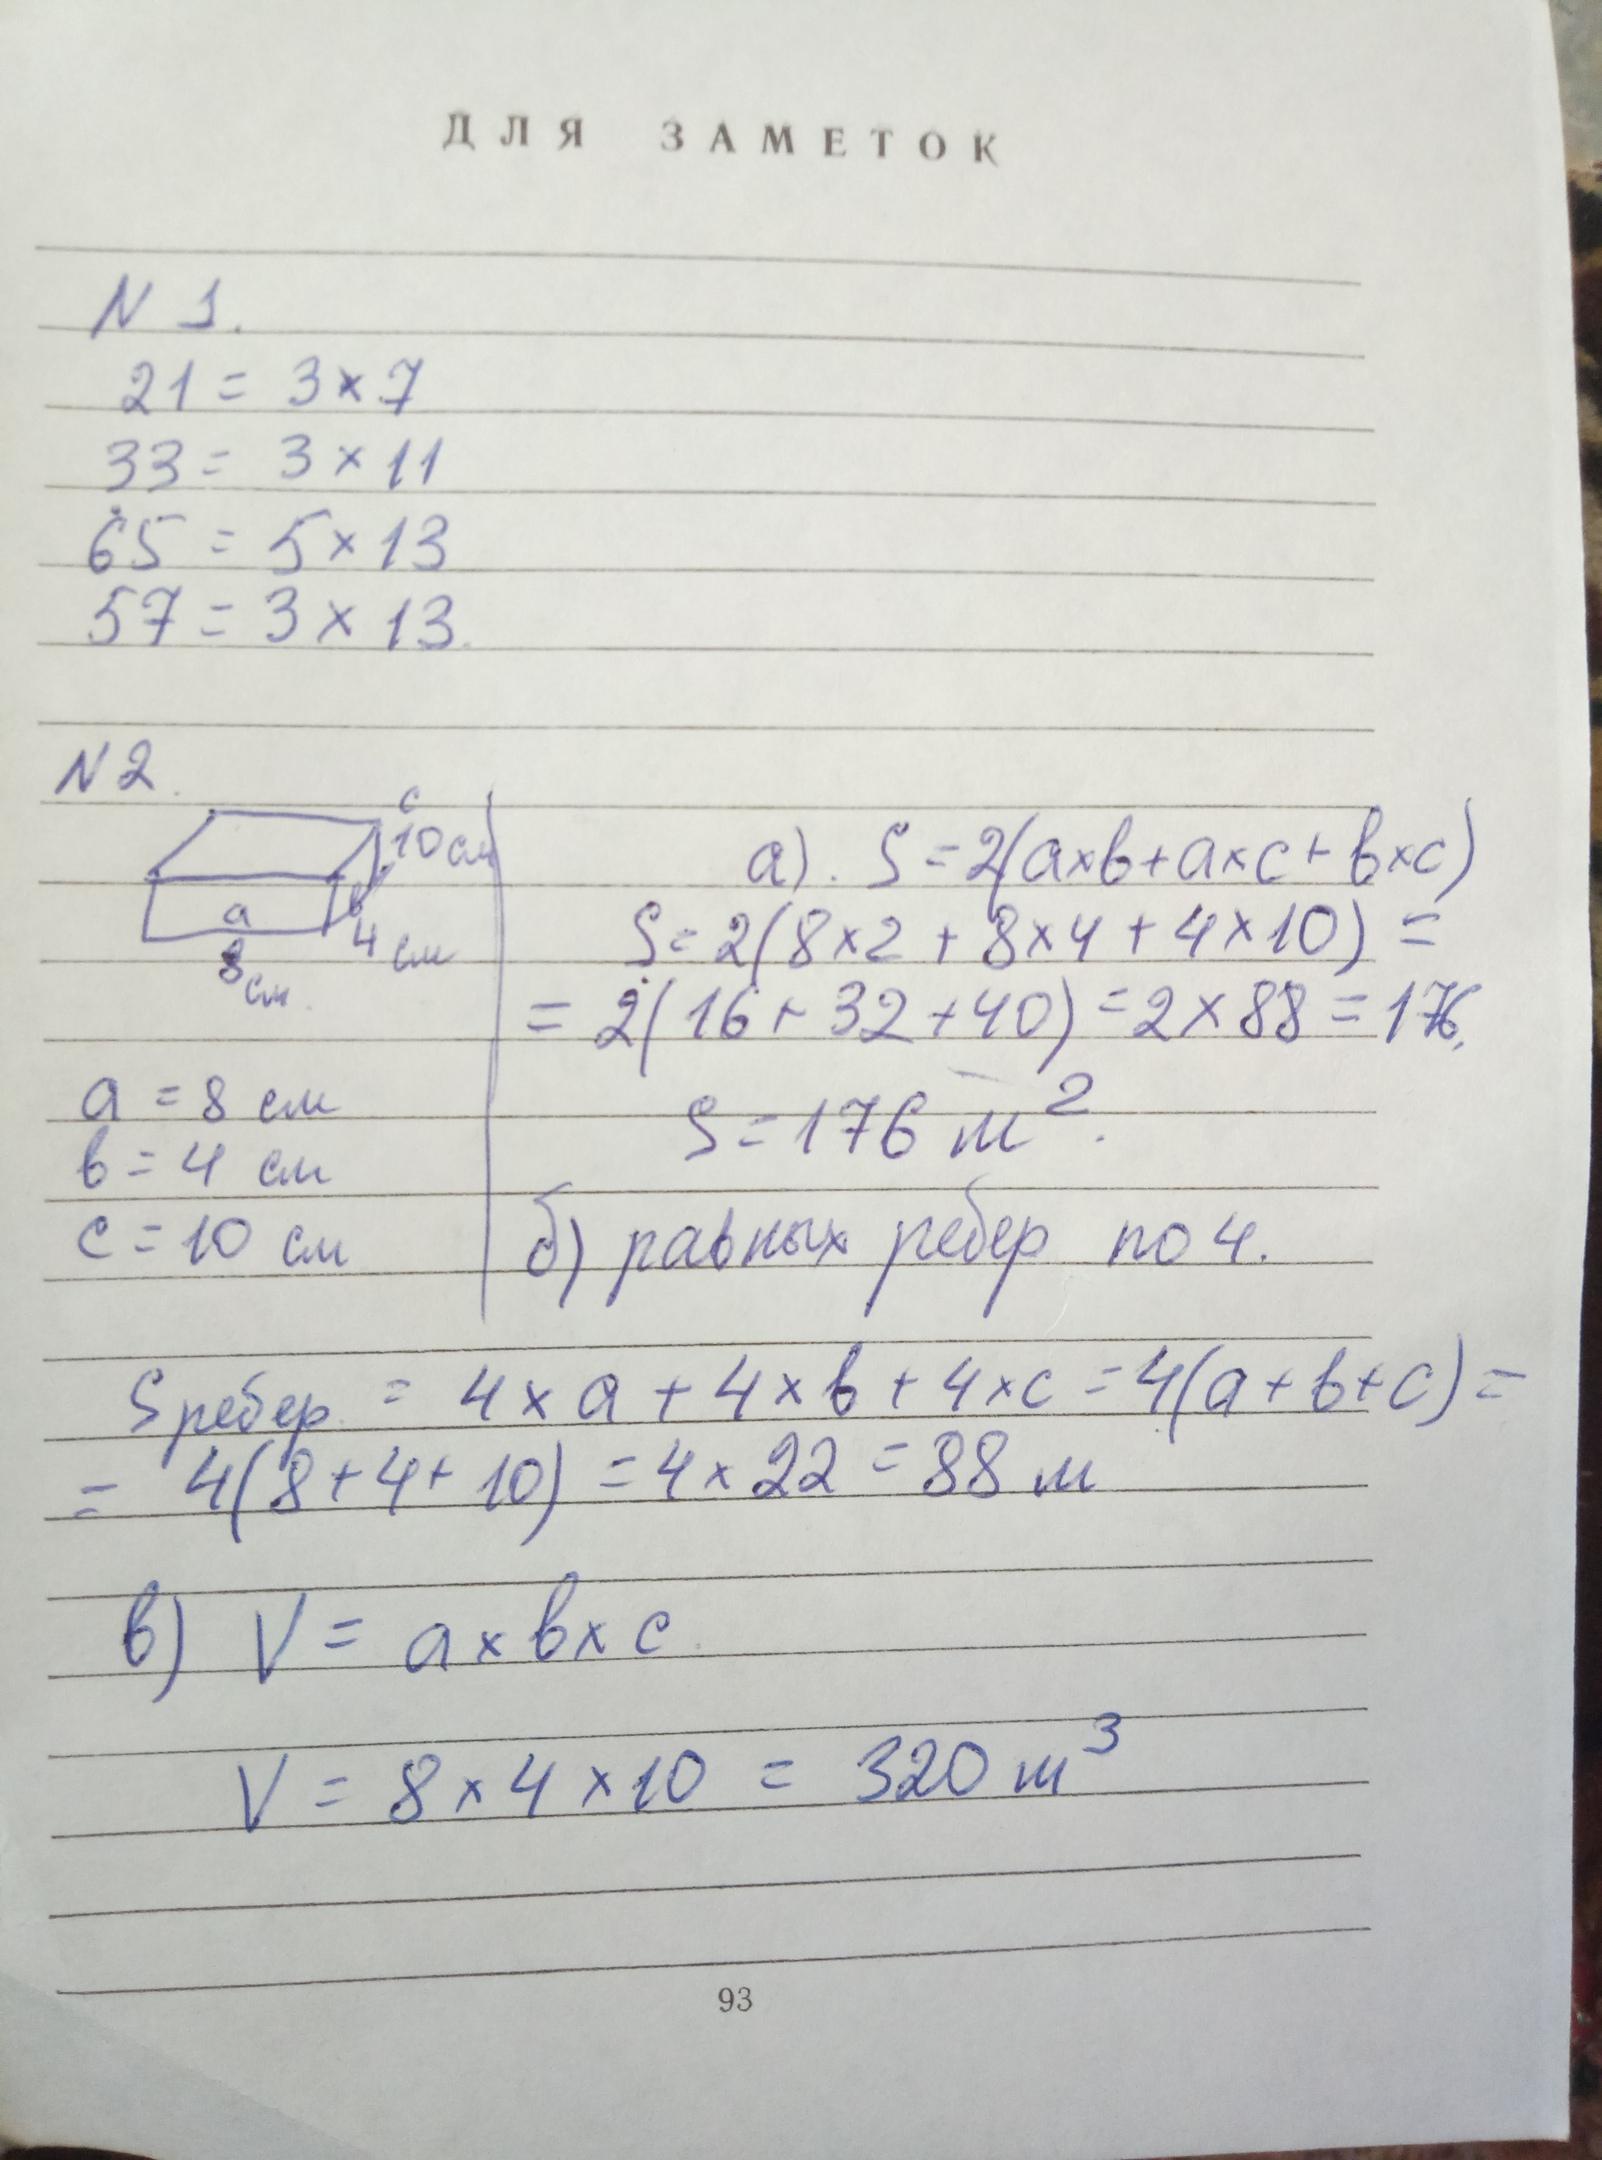 ДЛЯ ЗАМЕТОК
N 1.
21 = 3 × 7
33 = 3 × 11
65 = 5 × 13
57 = 3 × 13.
N 2.
c
10 см
a
8 см.
в
4 см
a = 8 см
в = 4 см
c = 10 см
а). S = 2(a×в+a×c+в×c)
S = 2(8×2 + 8×4 + 4×10) =
= 2(16 + 32 + 40) = 2 × 88 = 176.
S = 176 м².
б) равных ребер по 4.
S ребер. = 4 × a + 4 × в + 4 × c = 4(a + в + c) =
= 4(8 + 4 + 10) = 4 × 22 = 88 м
в) V = a × в × c.
V = 8 × 4 × 10 = 320 м³
93